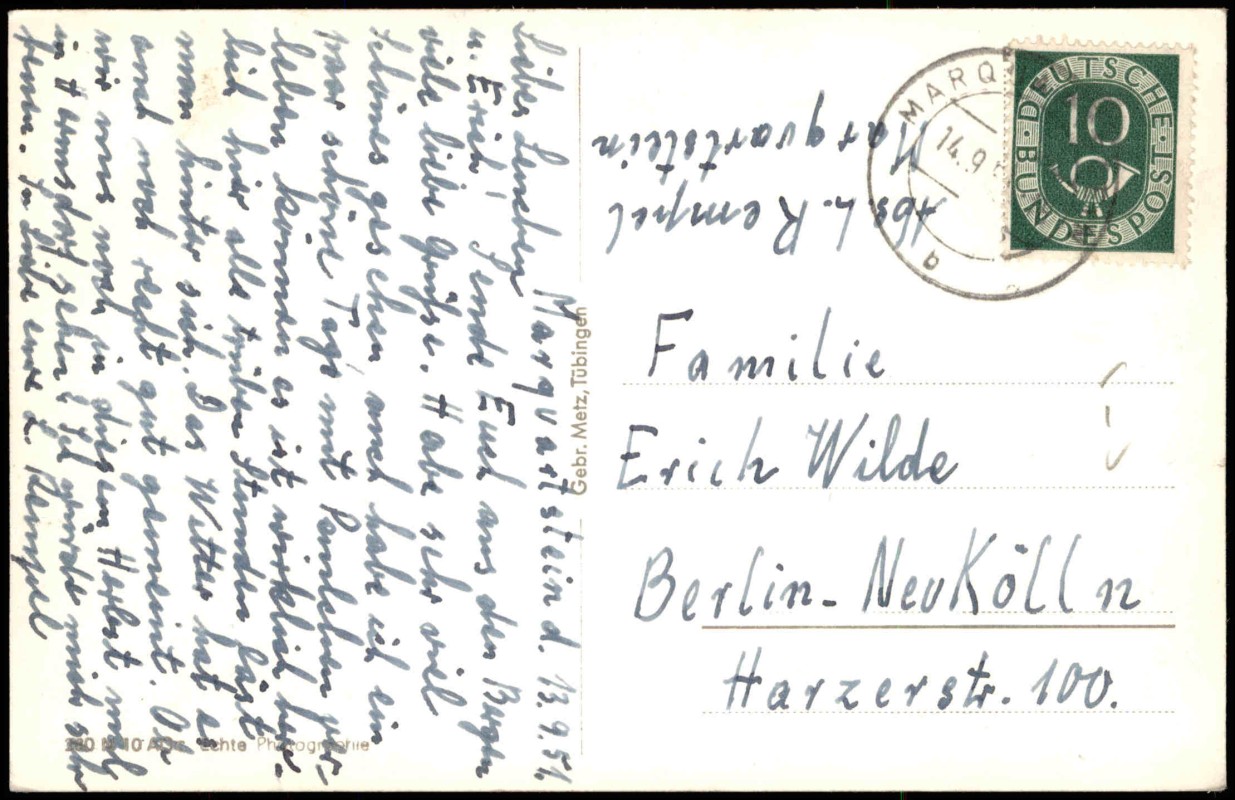 Marquartstein d. 13.9.54
Liebes Lenchen
u. Erich! Sende Euch aus den Bergen
viele liebe Grüße. Habe sehr viel
schönes gesehen, auch habe ich ein
paar schöne Tage mit Paulchen ver-
leben können es ist wirklich herr-
lich hier alle trüben Stunden läst
man hinter sich. Das Wetter hat es
auch noch recht gut gemeint. Ob
wir uns noch in diesem Herbst mal
in sehen? Ich würde mich sehr
freuen. In Liebe eure L. Rempel
Gebr. Metz, Tübingen
280 N 10 Echte Photographie
Abs. L. Rempel
Marquartstein
MARQ
14.9
a
DEUTSCHE BUNDESPOST
10
Familie
Erich Wilde
Berlin-Neukölln
Harzerstr. 100.